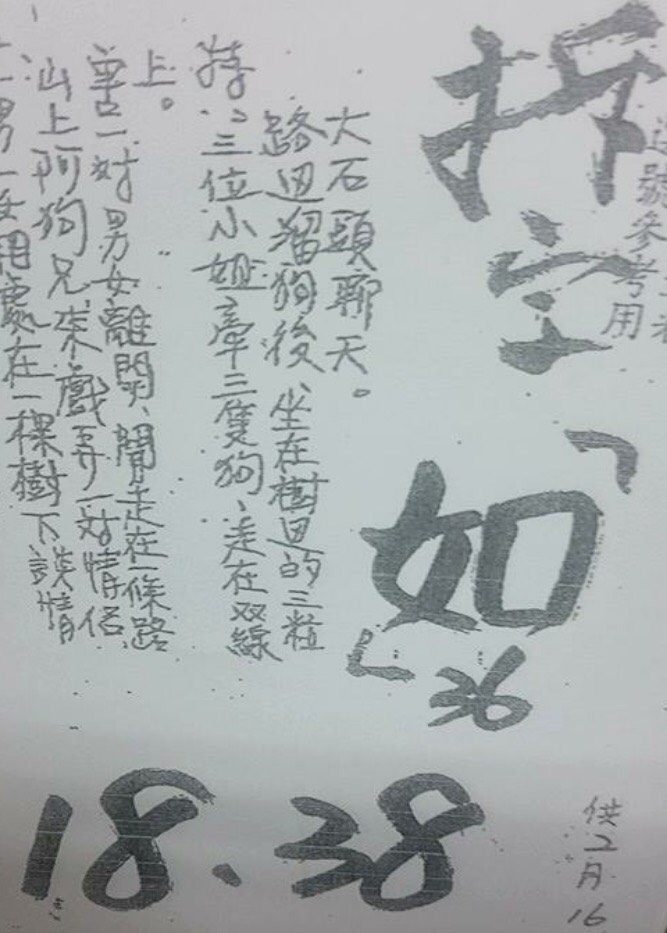 拆字
「如」
36
號參考用
男一女相處在一棵樹下談情
山上阿狗兄來戲弄一对情侶
一对男女離開、閒走在一條路
上。
特:三位小姐牽三隻狗、走在双線
路边溜狗後、坐在樹边的三粒
大石頭聊天。
18.38
供2月16